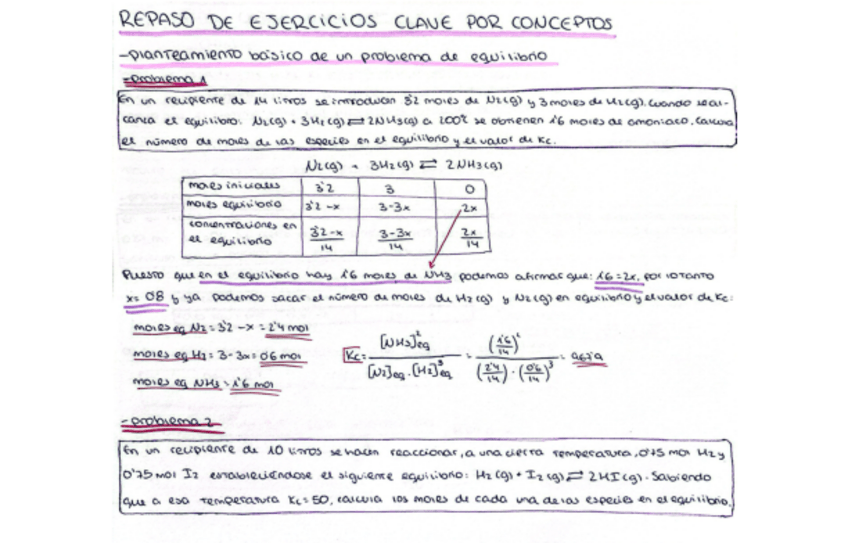 REPASO DE EJERCICIOS CLAVE POR CONCEPTOS
-planteamiento básico de un problema de equilibrio
-problema 1
En un recipiente de 14 litros se introducen 3'2 moles de N2(g) y 3 moles de H2(g). Cuando se al-
canza el equilibrio: N2(g) + 3H2(g) ⇌ 2NH3(g) a 200ºC se obtienen 1'6 moles de amoniaco. Calcula
el número de moles de las especies en el equilibrio y el valor de Kc.
N2(g) + 3H2(g) ⇌ 2NH3(g)
moles iniciales 3'2 3 0
moles equilibrio 3'2-x 3-3x 2x
concentraciones en el equilibrio (3'2-x)/14 (3-3x)/14 2x/14
Puesto que en el equilibrio hay 1'6 moles de NH3 podemos afirmar que: 1'6=2x, por lo tanto
x=0'8 y ya podemos sacar el número de moles de H2(g) y N2(g) en equilibrio y el valor de Kc:
moles eq N2=3'2-x=2'4 mol
moles eq H2=3-3x=0'6 mol
moles eq NH3=1'6 mol
Kc= [NH3]²eq / [N2]eq·[H2]³eq = (1'6/14)² / (2'4/14)·(0'6/14)³ =
-problema 2
En un recipiente de 10 litros se hacen reaccionar, a una cierta temperatura, 0'75 mol H2 y
0'75 mol I2 estableciéndose el siguiente equilibrio: H2(g) + I2(g) ⇌ 2HI(g). Sabiendo
que a esa temperatura Kc=50, calcula los moles de cada una de las especies en el equilibrio.